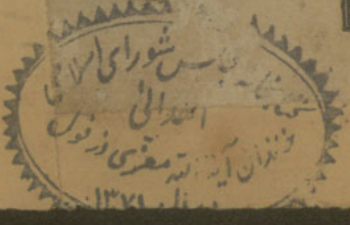 کتابخانه مجلس شورای اسلامی
اهدائی
فرزندان آیة الله معزی دزفولی
سال ۱۳۷۱